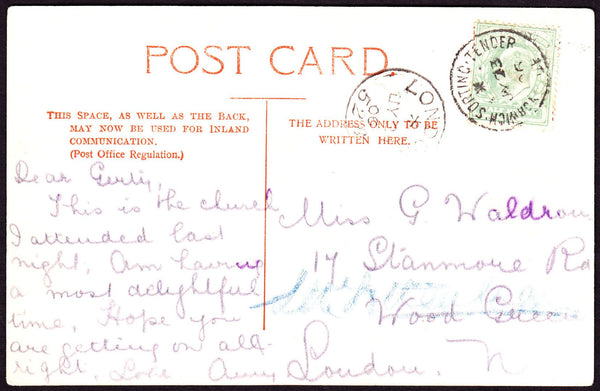 POST CARD
THIS SPACE, AS WELL AS THE BACK,
MAY NOW BE USED FOR INLAND
COMMUNICATION.
(Post Office Regulation.)
THE ADDRESS ONLY TO BE
WRITTEN HERE.
NORWICH · SORTING · TENDER
LON
Dear Gerty,
This is the church
I attended last
night, Am having
a most delightful
time, Hope you
are getting on all-
right, Love
Miss G Waldron
17 Stanmore Rd
Wood Green
London. N